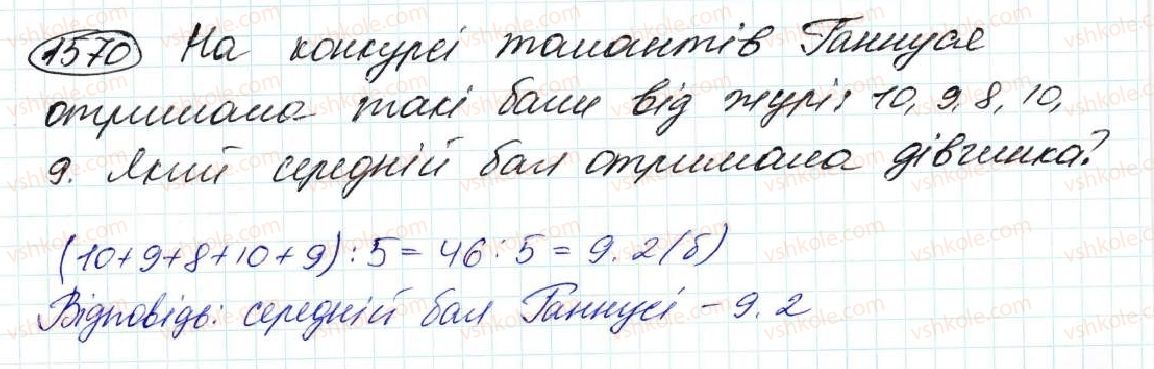 1570 На конкурсі талантів Ганнуся
отримала такі бали від журі: 10, 9, 8, 10,
9. Який середній бал отримала дівчинка?
(10+9+8+10+9):5=46:5=9.2(б)
Відповідь: середній бал Ганнусі – 9.2